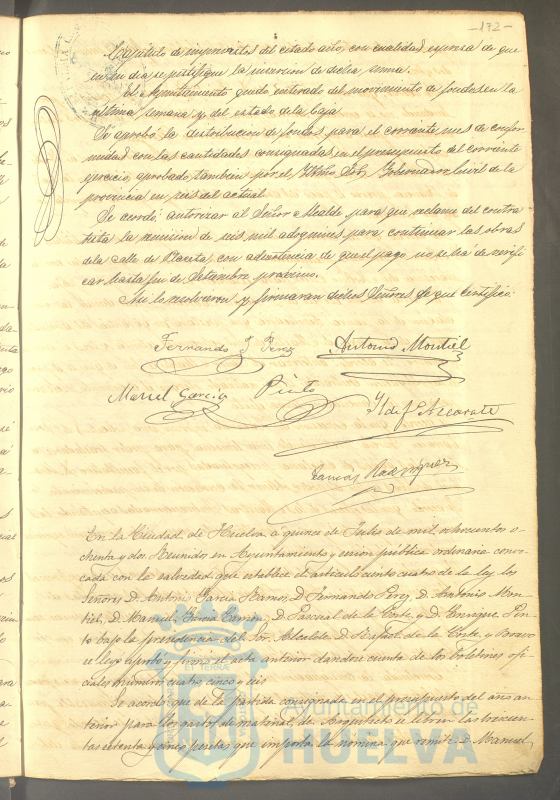 -172-
Capitulo de imprevistos del citado año, con cualidad expresa de que
en su dia se justifique la inversion de dicha suma.
El Ayuntamiento quedó enterado del movimiento de fondos en la
última semana y del estado de la baja
Se aprobó la distribucion de fondos para el corriente mes de confor
midad con las cantidades consignadas en el presupuesto del corriente
ejercicio, aprobado tambien por el Gobernador Civil de la
provincia en seis del actual.
Se acordó autorizar al Señor Alcalde para que reclame del contra
tista la remision de seis mil adoquines para continuar las obras
de la calle de Placeta, con advertencia de que el pago no se ha de verifi
car hasta fin de Setiembre proximo.
Asi lo resolvieron y firmaran dichos Señores de que certifico.
Fernando J Perez Antonio Montiel
Manuel Garcia Pinto
Ildef. Alcorate
Rodriguez
En la Ciudad de Huelva á quince de Julio de mil ochocientos o-
chenta y dos. Reunidos en Ayuntamiento y sesion pública ordinaria convo-
cada con la salvedad que establece el articulo ciento cuatro de la ley los
Señores D. Antonio Garcia Ramos, D. Fernando Perez, D. Antonio Mon
tiel, D. Manuel Garcia, D. Pascual de la Corte, y D. Enrique Pin
to bajo la presidencia del Sor. Alcalde D. Rafael de la Corte y Bravo
se leyó aprobó y firmó el acta anterior dandose cuenta de los boletines ofi
ciales numero cuatro, cinco y seis
Se acordó que de la partida consignada en el presupuesto del año an
terior para los gastos de material, de Arquitecto se libren las trescien
tas setenta y cinco pesetas que importa la nomina que remite D. Manuel
Ayuntamiento de
HUELVA